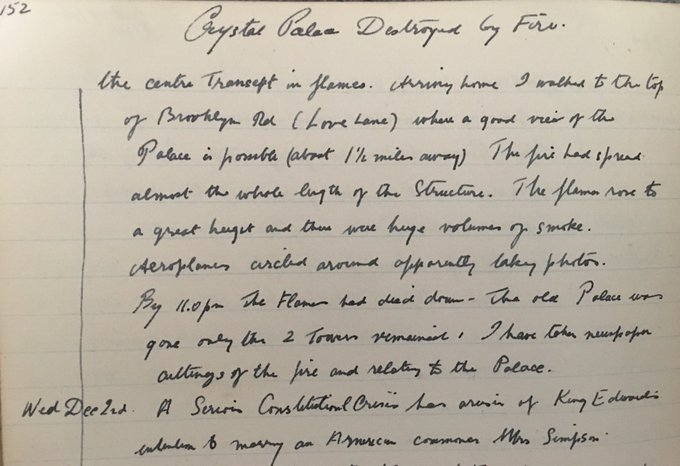 152
Crystal Palace Destroyed by Fire.
the centre Transept in flames. Arriving home I walked to the top
of Brooklyn Rd (Love Lane) where a good view of the
Palace is possible (about 1½ miles away) The fire had spread
almost the whole length of the Structure. The flames rose to
a great height and there were huge volumes of smoke.
Aeroplanes circled around apparently taking photos.
By 11.0 pm The Flames had died down - The old Palace was
gone only the 2 Towers remained, I have taken newspaper
cuttings of the fire and relating to the Palace.
Wed Dec 2nd. A Serious Constitutional Crisis has arisen of King Edward's
intention to marry an American commoner Mrs Simpson